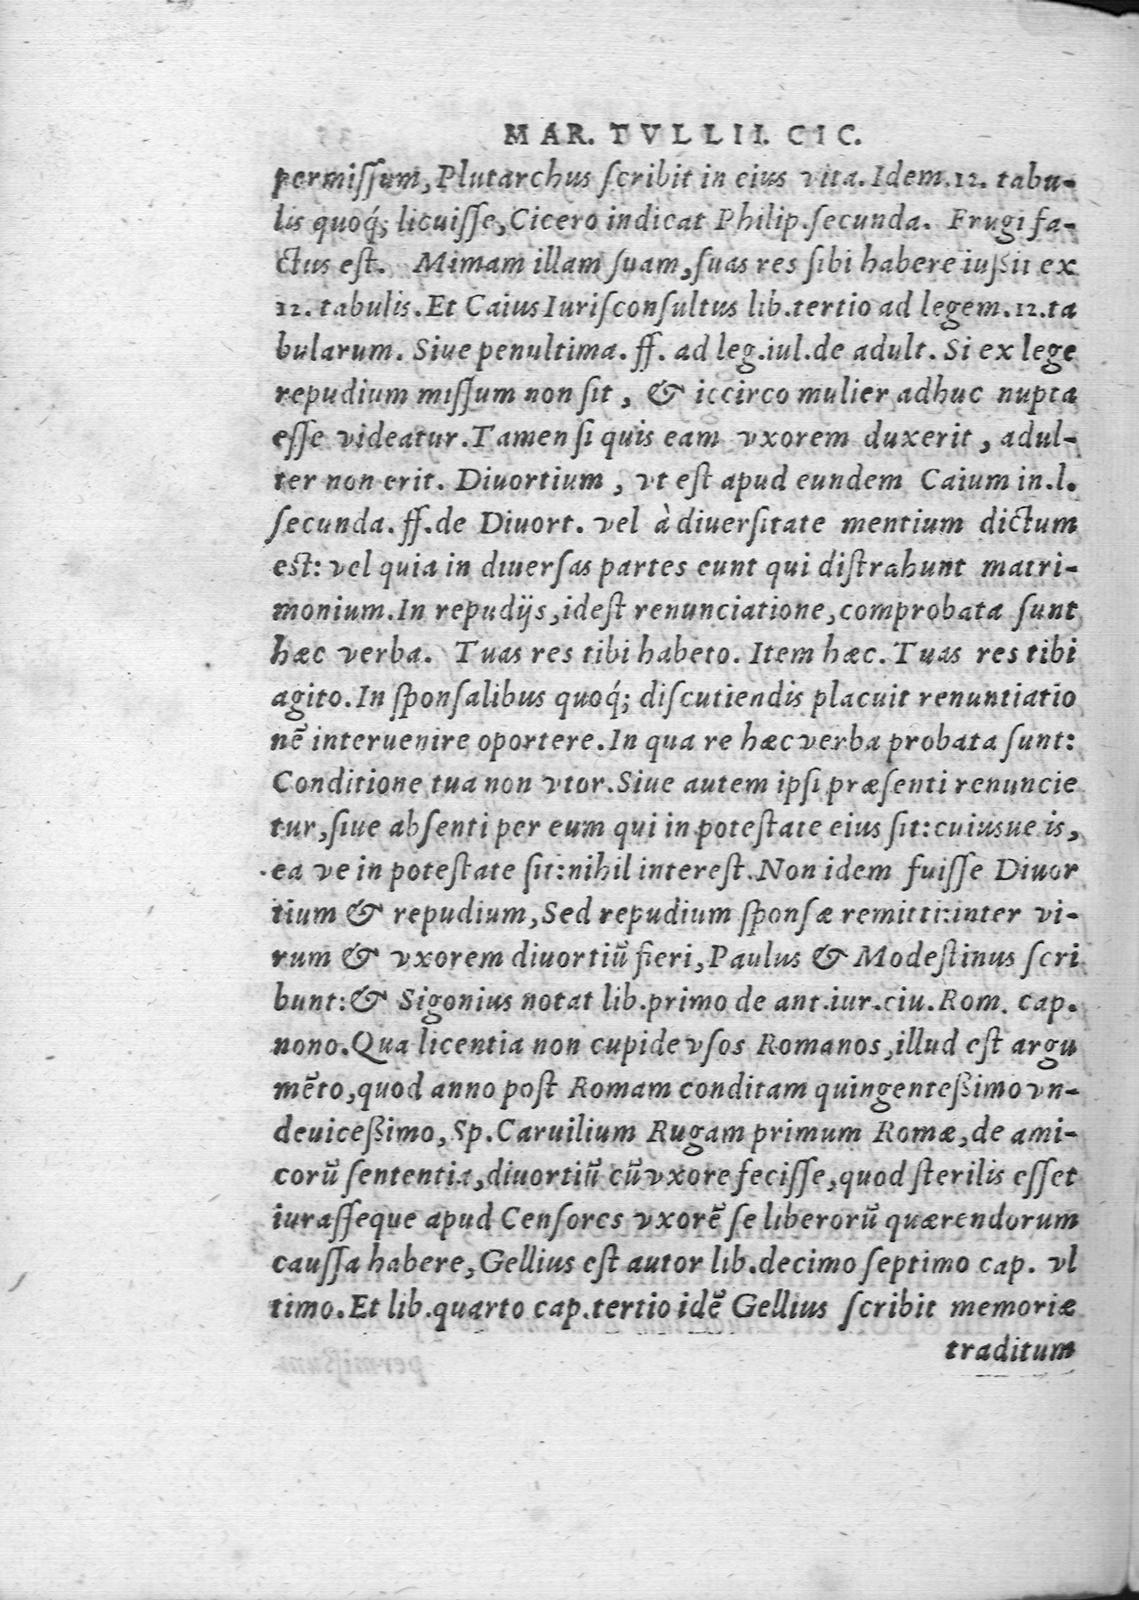 MAR. TVLLII. CIC.
permiſſum, Plutarchus ſcribit in eius vita. Idem. 12. tabu-
lis quoq́; licuiſſe, Cicero indicat Philip. ſecunda. Frugi fa-
ctus eſt. Mimam illam ſuam, ſuas res ſibi habere iuſſit ex
12. tabulis. Et Caius Iuriſconſultus lib. tertio ad legem. 12. ta
bularum. Siue penultima. ff. ad leg. iul. de adult. Si ex lege
repudium miſſum non ſit, & iccirco mulier adhuc nupta
eſſe videatur. Tamen ſi quis eam vxorem duxerit, adul-
ter non erit. Diuortium, vt eſt apud eundem Caium in. l.
ſecunda. ff. de Diuort. vel à diuerſitate mentium dictum
est: vel quia in diuerſas partes eunt qui diſtrahunt matri-
monium. In repudijs, ideſt renunciatione, comprobata ſunt
hæc verba. Tuas res tibi habeto. Item hæc. Tuas res tibi
agito. In ſponſalibus quoq́; diſcutiendis placuit renuntiatio
nẽ interuenire oportere. In qua re hæc verba probata ſunt:
Conditione tua non vtor. Siue autem ipſi præſenti renuncie
tur, ſiue abſenti per eum qui in poteſtate eius ſit: cuiusue is,
ea ve in poteſtate ſit: nihil intereſt. Non idem fuiſſe Diuor
tium & repudium, Sed repudium ſponſæ remitti: inter vi-
rum & vxorem diuortiũ fieri, Paulus & Modeſtinus ſcri
bunt: & Sigonius notat lib. primo de ant. iur. ciu. Rom. cap.
nono. Qua licentia non cupide vſos Romanos, illud eſt argu
mẽto, quod anno poſt Romam conditam quingenteßimo vn-
deuiceßimo, Sp. Caruilium Rugam primum Romæ, de ami-
corũ ſententia, diuortiũ cũ vxore feciſſe, quod ſterilis eſſet
iuraſſeque apud Cenſores vxorẽ ſe liberorũ quærendorum
cauſſa habere, Gellius eſt autor lib. decimo ſeptimo cap. vl
timo. Et lib. quarto cap. tertio idẽ Gellius ſcribit memoriæ
traditum